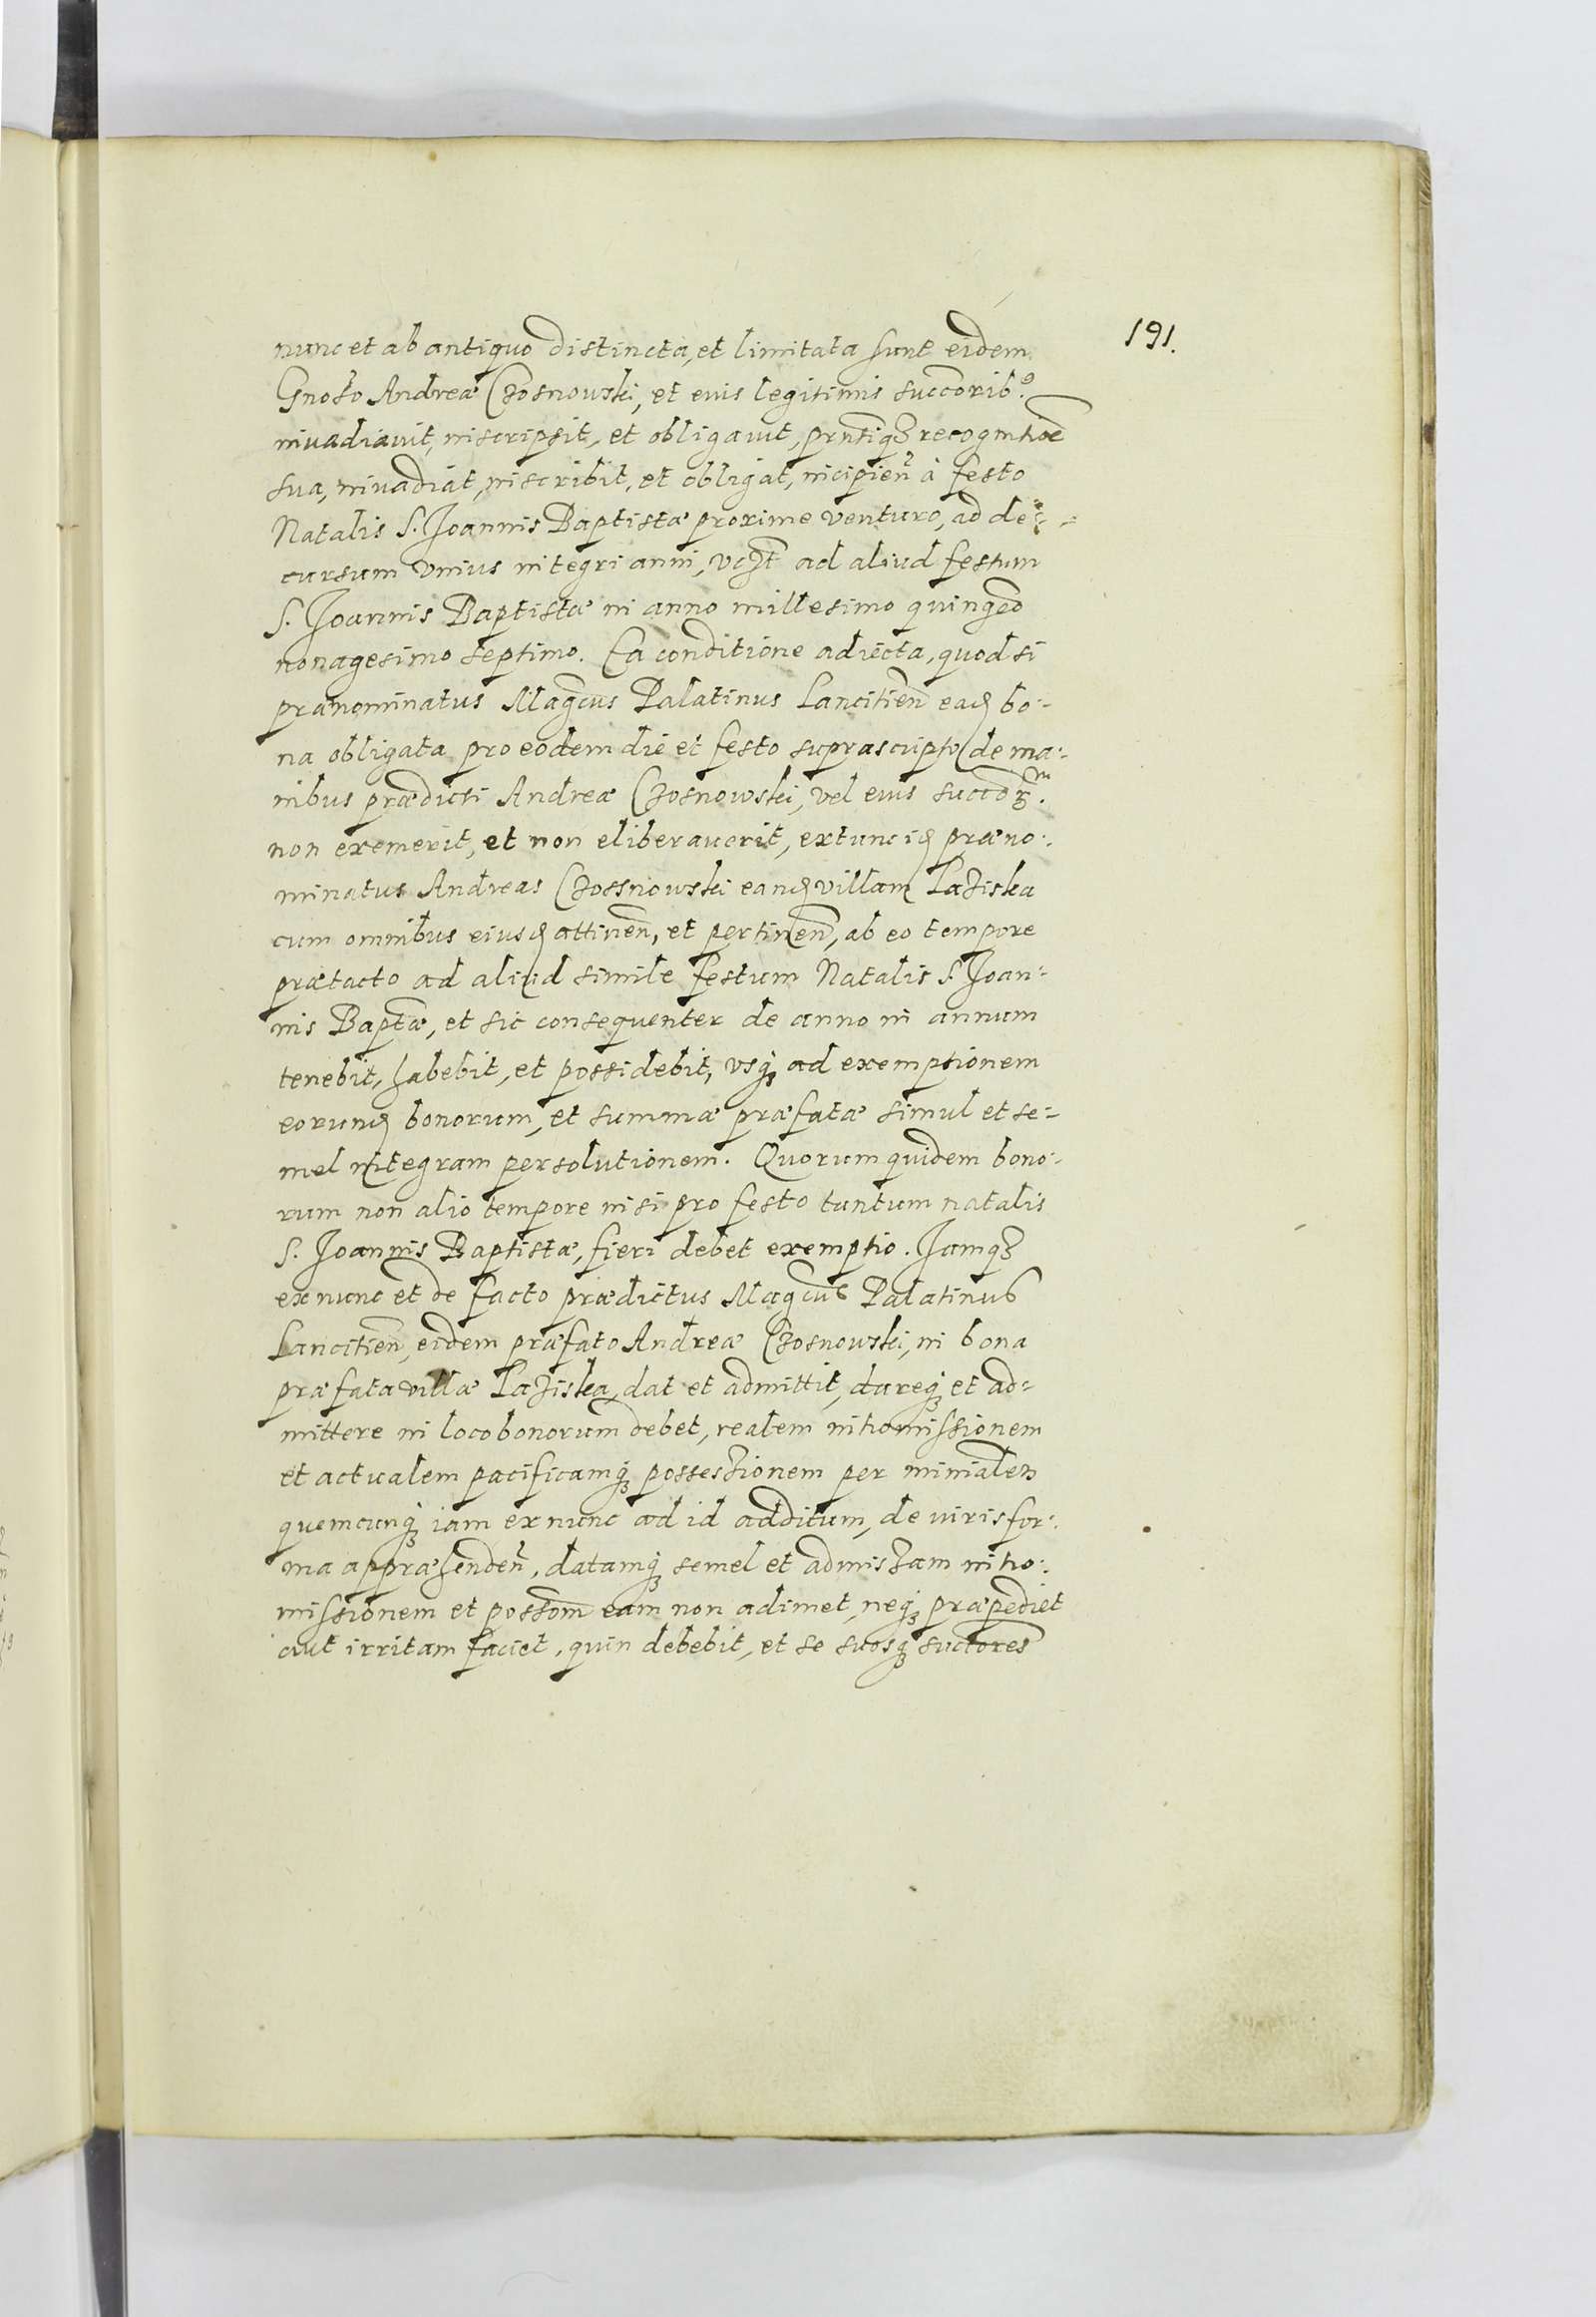 191.
nunc et ab antiquo distincta, et limitata sunt eidem
Gnoso Andreæ Czosnowski, et eius legitimis succorib9.
invadiavit, inscripsit, et obligavit, prntiq3 recognitioē
sua, invadiat, inscribit, et obligat, incipien̄ à festo
Natalis S. Joannis Baptistæ proxime venturo, ad de:
cursum vnius integri anni, vczt ad aliud festum
S. Joannis Baptistæ in anno millesimo quingēo
nonagesimo septimo. Ea conditione adiecta, quod si
prænominatus Magcus Palatinus Lancitien̄ eaḍ bo:
na obligata pro eodem die et festo suprascripto de ma:
nibus prædicti Andreæ Czosnowski, vel eius succorm.
non exemerit, et non eliberaverit, extunc iḍ præno:
minatus Andreas Czossnowski eanḍ villam Laziska
cum omnibus eiusḍ attinen̄, et pertinen̄, ab eo tempore
prætacto ad aliud simile festum Natalis S. Joan:
nis Baptæ, et sic consequenter de anno in annum
tenebit, habebit, et possidebit, vsq3 ad exemptionem
eorunḍ bonorum, et summæ præfatæ simul et se:
mel integram persolutionem. Quorum quidem bono:
rum non alio tempore nisi pro festo tantum natalis
S. Joannis Baptistæ, fieri debet exemptio. Jamq3
ex nunc et de facto prædictus Magcus Palatinus
Lancitien̄, eidem præfato Andreæ Czosnowski, in bona
præfata villæ Laziska, dat et admittit, dareq3 et ad:
mittere in loco bonorum debet, realem intromissionem
et actualem pacificamq3 possessionem per minialem
quemcunq3 iam ex nunc ad id additum, de iuris for:
ma appræhenden̄, datamq3 semel et admissam intro:
missionem et possom̄ eam non adimet, neq3 præpediet
aut irritam faciet, quin debebit, et se suosq3 succores